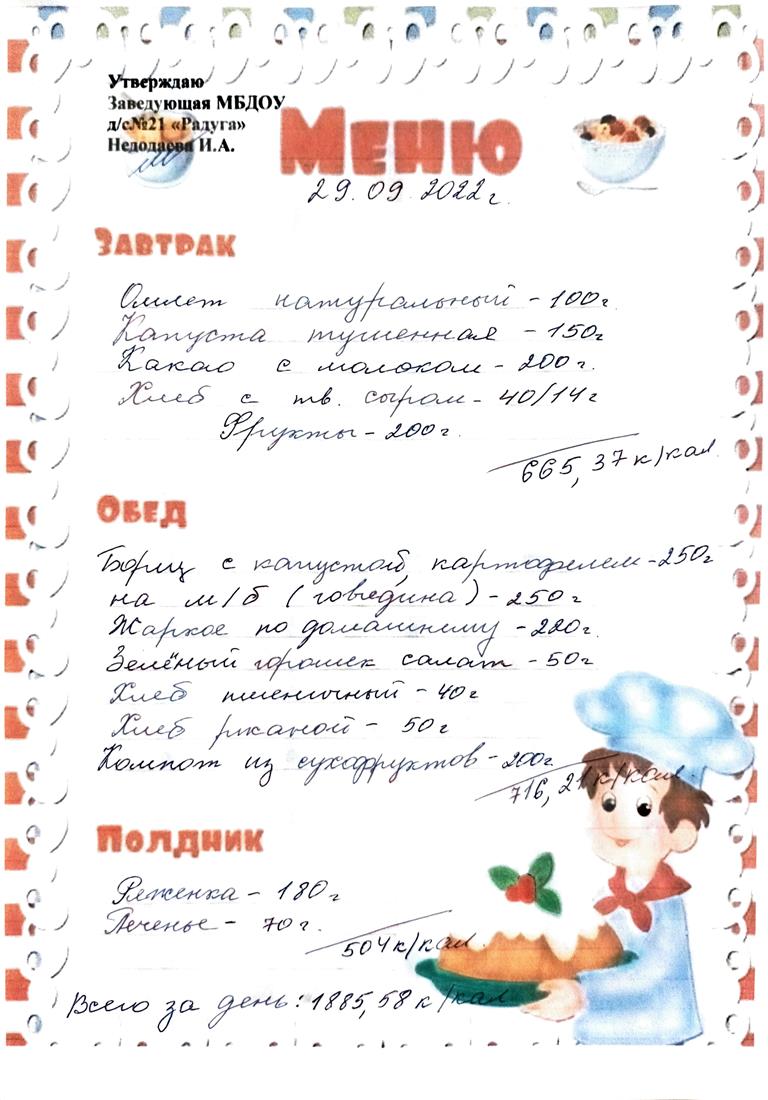 Утверждаю
Заведующая МБДОУ
д/с№21 «Радуга»
Недодаева И.А.
Меню
29.09.2022г.
Завтрак
Омлет натуральный - 100г.
Капуста тушенная - 150г
Какао с молоком - 200г.
Хлеб с тв. сыром - 40/14г
Фрукты - 200г.
665,37 к/кал
Обед
Борщ с капустой, картофелем - 250г
на м/б (говедина) - 250г
Жаркое по домашнему - 220г.
Зелёный горошек салат - 50г
Хлеб пшеничный - 40г
Хлеб ржаной - 50г
Компот из сухофруктов - 200г.
716,21 к/кал.
Полдник
Ряженка - 180г
Печенье - 70г.
504 к/кал.
Всего за день: 1885,58 к/кал